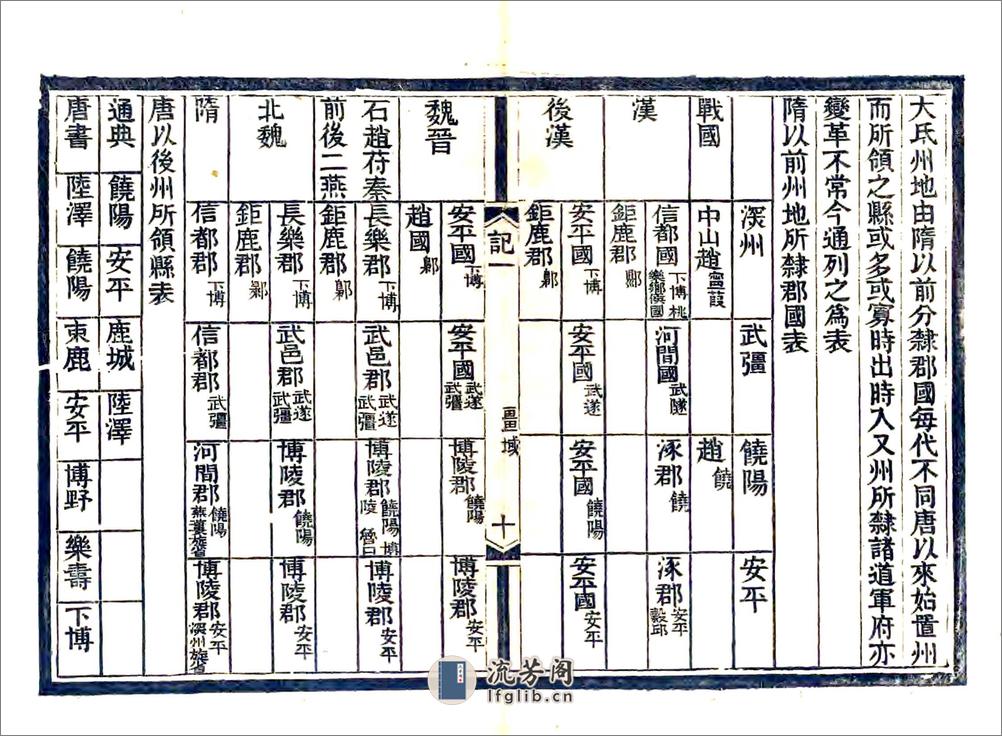 大氐州地由隋以前分隸郡國每代不同唐以來始置州
而所領之縣或多或寡時出時入又州所隸諸道軍府亦
變革不常今通列之為表
隋以前州地所隸郡國表
深州 武彊 饒陽 安平
戰國 中山趙 寧葭 趙 饒
漢 信都國 下博 桃 樂鄉侯國 河間國 武隧 涿郡 饒 涿郡 安平 穀邱
鉅鹿郡 鄡
後漢 安平國 下博 安平國 武遂 安平國 饒陽 安平國 安平
鉅鹿郡 鄡
記一 畺域 十
魏晉 安平國 下博 安平國 武遂 武彊 博陵郡 饒陽 博陵郡 安平
趙國 鄡
石趙苻秦 長樂郡 下博 武邑郡 武遂 武彊 博陵郡 饒陽 博陵 魯口 博陵郡 安平
前後二燕 鉅鹿郡 鄡
北魏 長樂郡 下博 武邑郡 武遂 武彊 博陵郡 饒陽 博陵郡 安平
鉅鹿郡 鄡
隋 信都郡 下博 信都郡 武彊 河間郡 饒陽 蕪蔞旋省 博陵郡 安平 深州旋省
唐以後州所領縣表
通典 饒陽 安平 鹿城 陸澤
唐書 陸澤 饒陽 束鹿 安平 博野 樂壽 下博
流芳阁
lfglib.cn